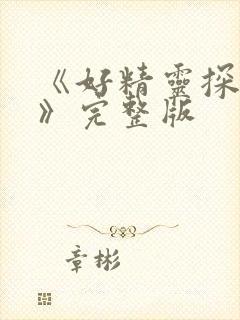 《好精靈探
》完整版
章彬